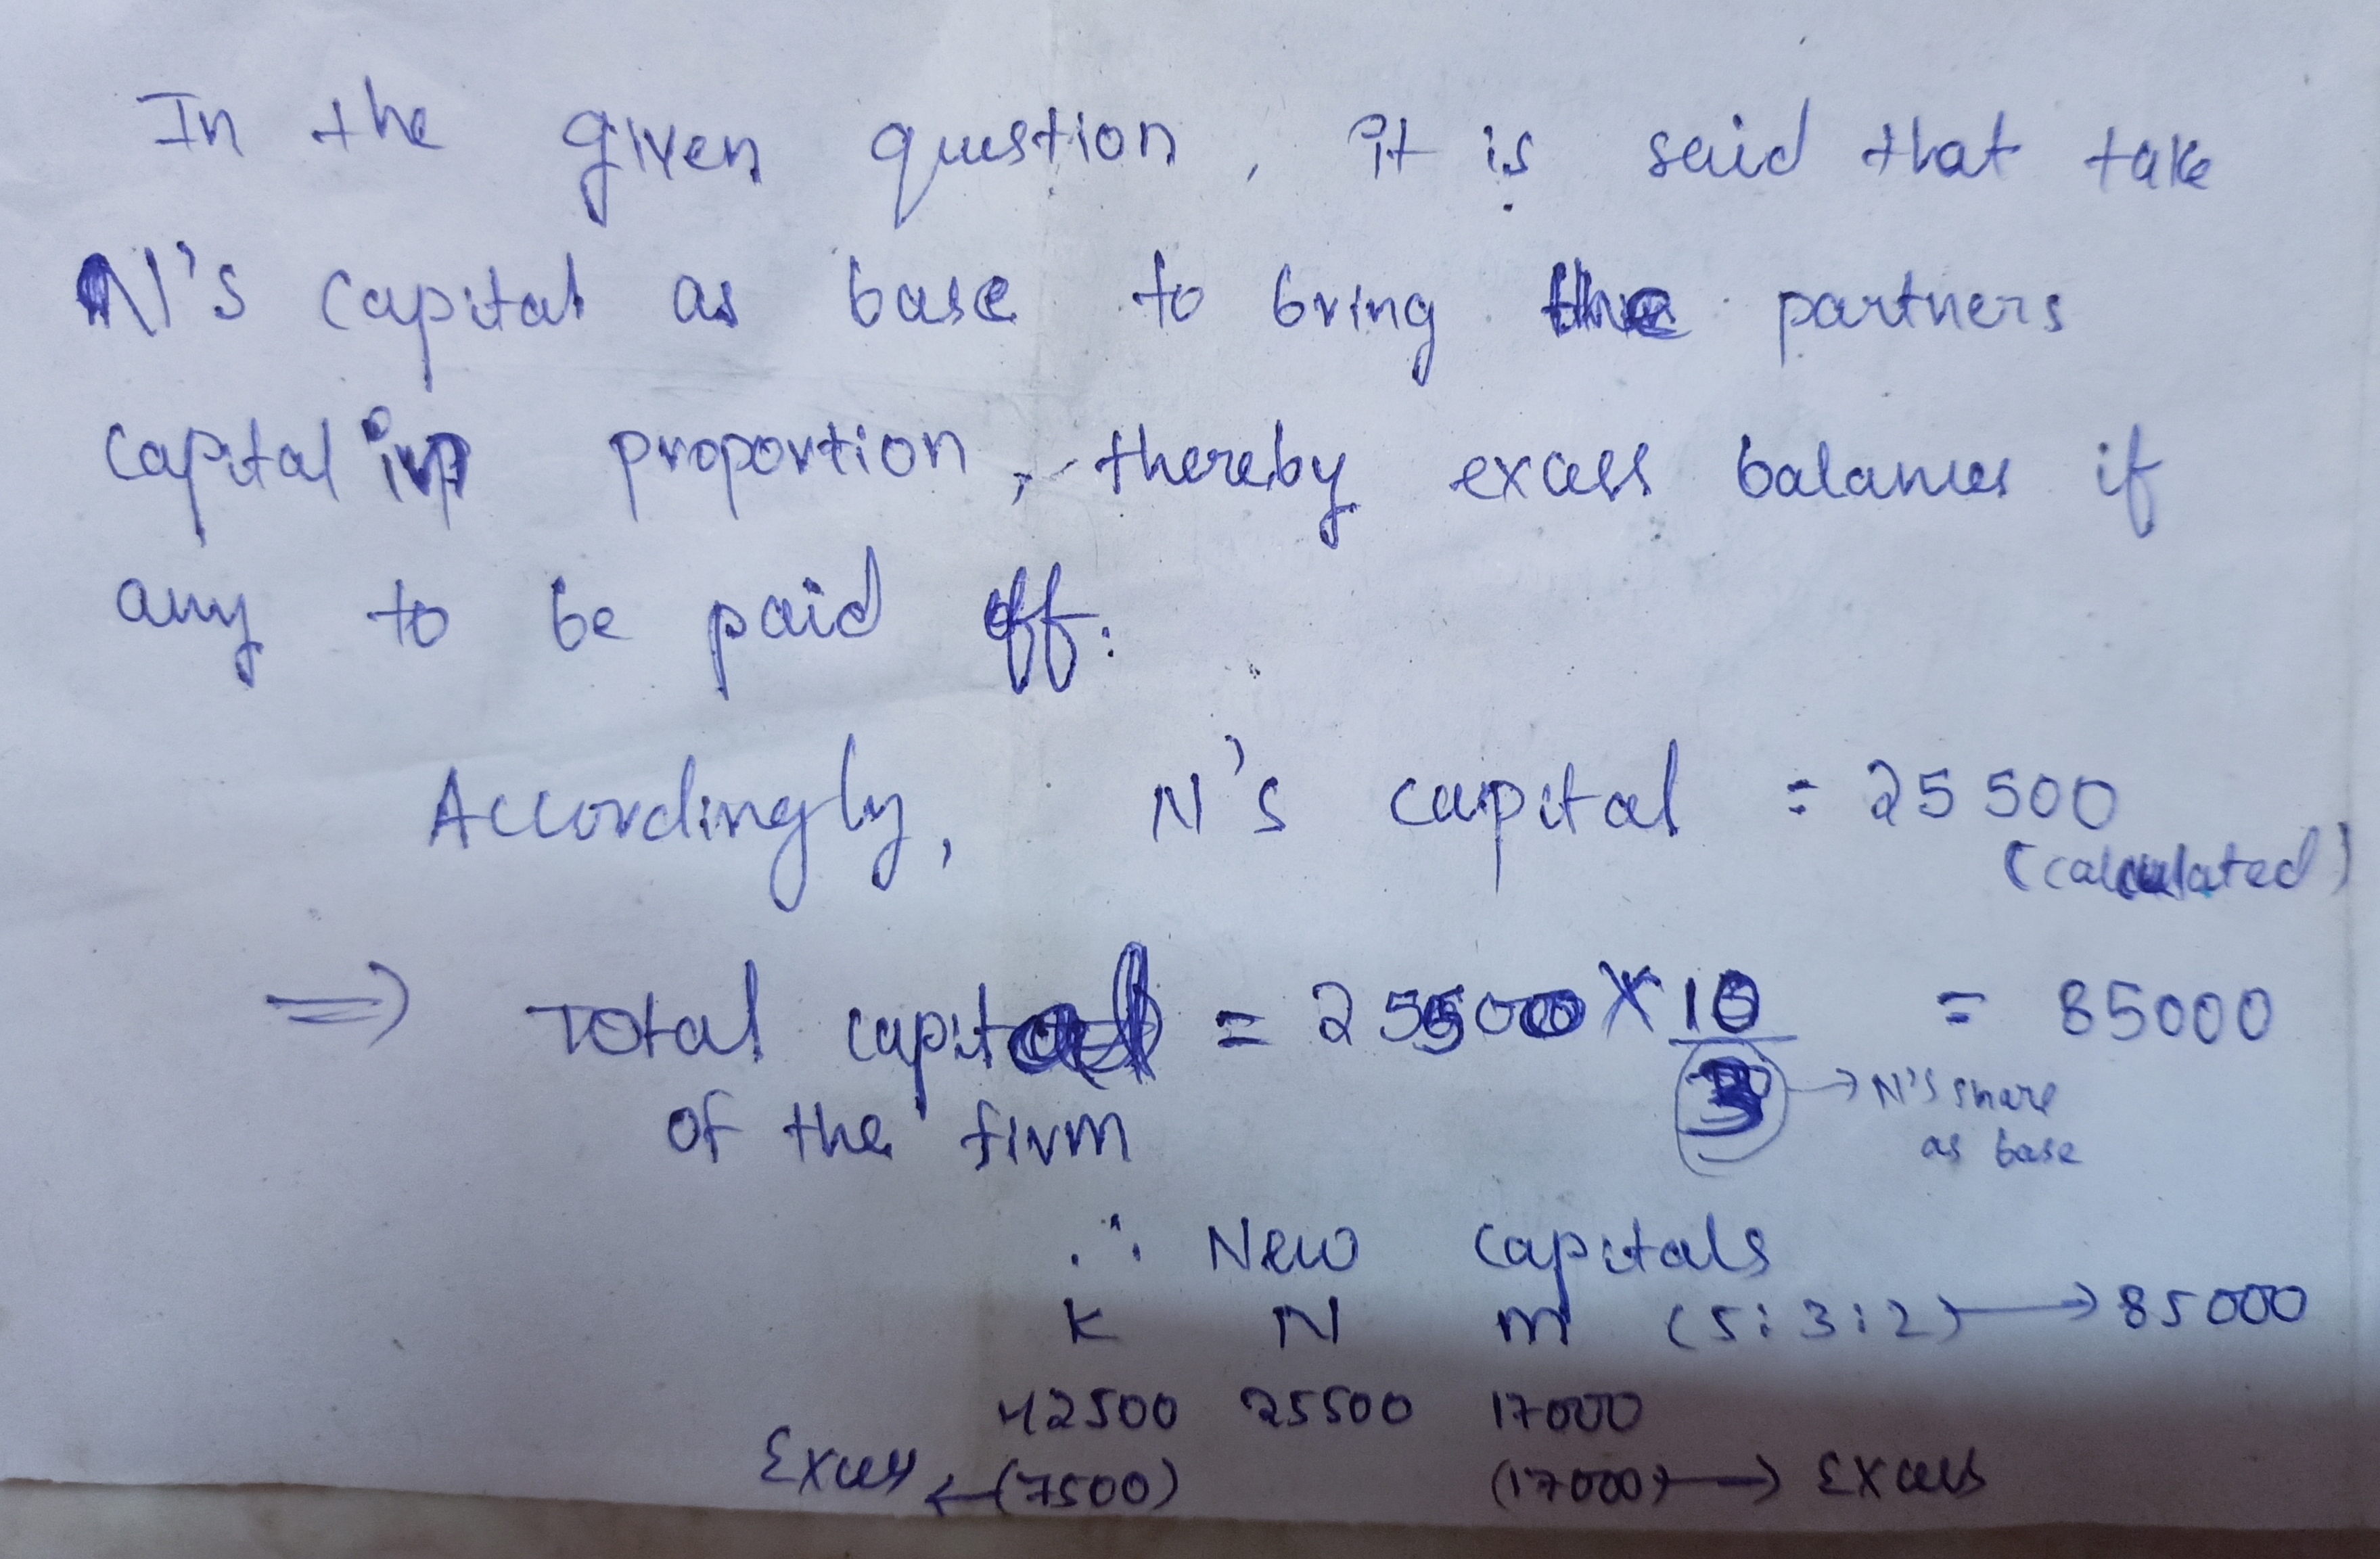 In the given question, it is said that take
N's capital as base to bring the partners
capital in proportion, thereby excess balances if
any to be paid off.
Accordingly, N's capital = 25500
(calculated)
=> Total capital = 25500 X 10/3 = 85000
of the firm → N's share
as base
∴ New capitals
K N M (5:3:2) → 85000
42500 25500 17000
Excess ← (7500) (17000) → Excess